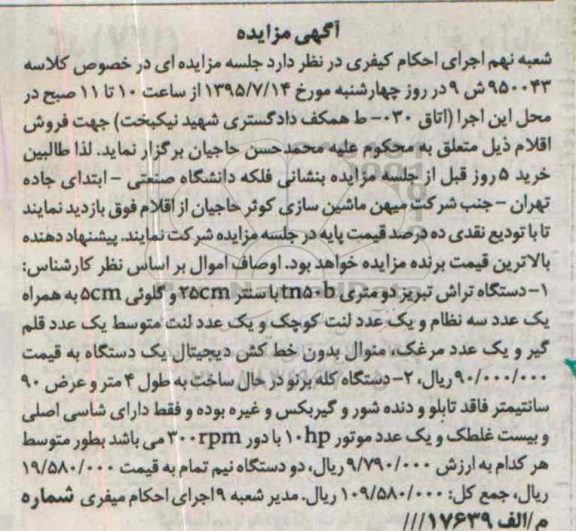 آگهی مزایده
شعبه نهم اجرای احکام کیفری در نظر دارد جلسه مزایده ای در خصوص کلاسه
۹۵۰۰۴۳ش ۹ در روز چهارشنبه مورخ ۱۳۹۵/۷/۱۴ از ساعت ۱۰ تا ۱۱ صبح در
محل این اجرا (اتاق ۰۳۰- ط همکف دادگستری شهید نیکبخت) جهت فروش
اقلام ذیل متعلق به محکوم علیه محمدحسن حاجیان برگزار نماید. لذا طالبین
خرید ۵ روز قبل از جلسه مزایده بنشانی فلکه دانشگاه صنعتی - ابتدای جاده
تهران - جنب شرکت میهن ماشین سازی کوثر حاجیان از اقلام فوق بازدید نمایند
تا با تودیع نقدی ده درصد قیمت پایه در جلسه مزایده شرکت نمایند. پیشنهاد دهنده
بالاترین قیمت برنده مزایده خواهد بود. اوصاف اموال بر اساس نظر کارشناس:
۱- دستگاه تراش تبریز دو متری tn۵۰b با سنتر ۲۵cm و گلوئی ۵cm به همراه
یک عدد سه نظام و یک عدد لنت کوچک و یک عدد لنت متوسط یک عدد قلم
گیر و یک عدد مرغک، منوال بدون خط کش دیجیتال یک دستگاه به قیمت
۹۰/۰۰۰/۰۰۰ ریال، ۲- دستگاه کله برنو در حال ساخت به طول ۴ متر و عرض ۹۰
سانتیمتر فاقد تابلو و دنده شور و گیربکس و غیره بوده و فقط دارای شاسی اصلی
و بیست غلطک و یک عدد موتور ۱۰hp با دور ۳۰۰rpm می باشد بطور متوسط
هر کدام به ارزش ۹/۷۹۰/۰۰۰ ریال، دو دستگاه نیم تمام به قیمت ۱۹/۵۸۰/۰۰۰
ریال، جمع کل: ۱۰۹/۵۸۰/۰۰۰ ریال. مدیر شعبه ۹ اجرای احکام میفری شماره
م/الف ۱۷۶۳۹///